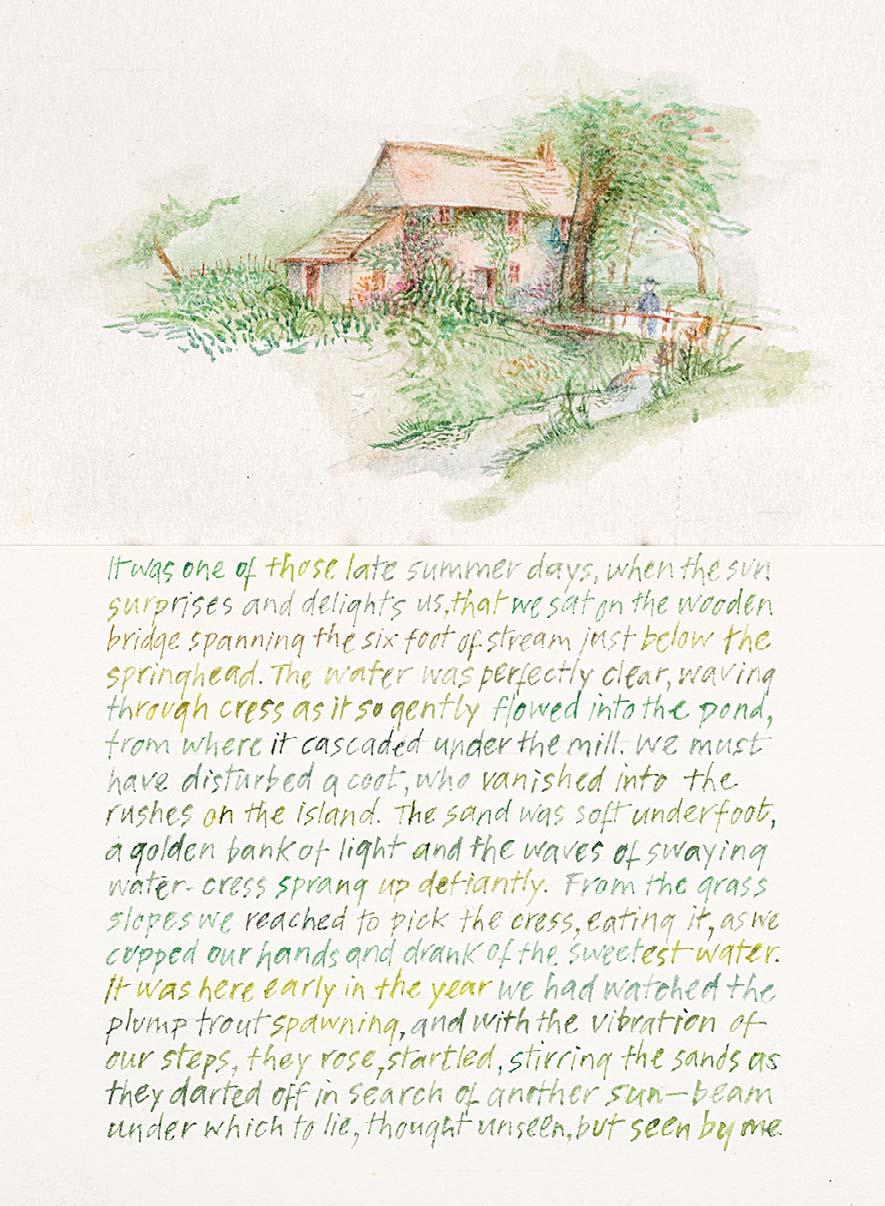 It was one of those late summer days, when the sun
surprises and delights us, that we sat on the wooden
bridge spanning the six foot of stream just below the
springhead. The water was perfectly clear, waving
through cress as it so gently flowed into the pond,
from where it cascaded under the mill. We must
have disturbed a coot, who vanished into the
rushes on the island. The sand was soft underfoot,
a golden bank of light and the waves of swaying
water-cress sprang up defiantly. From the grass
slopes we reached to pick the cress, eating it, as we
cupped our hands and drank of the sweetest water.
It was here early in the year we had watched the
plump trout spawning, and with the vibration of
our steps, they rose, startled, stirring the sands as
they darted off in search of another sun-beam
under which to lie, thought unseen, but seen by me.